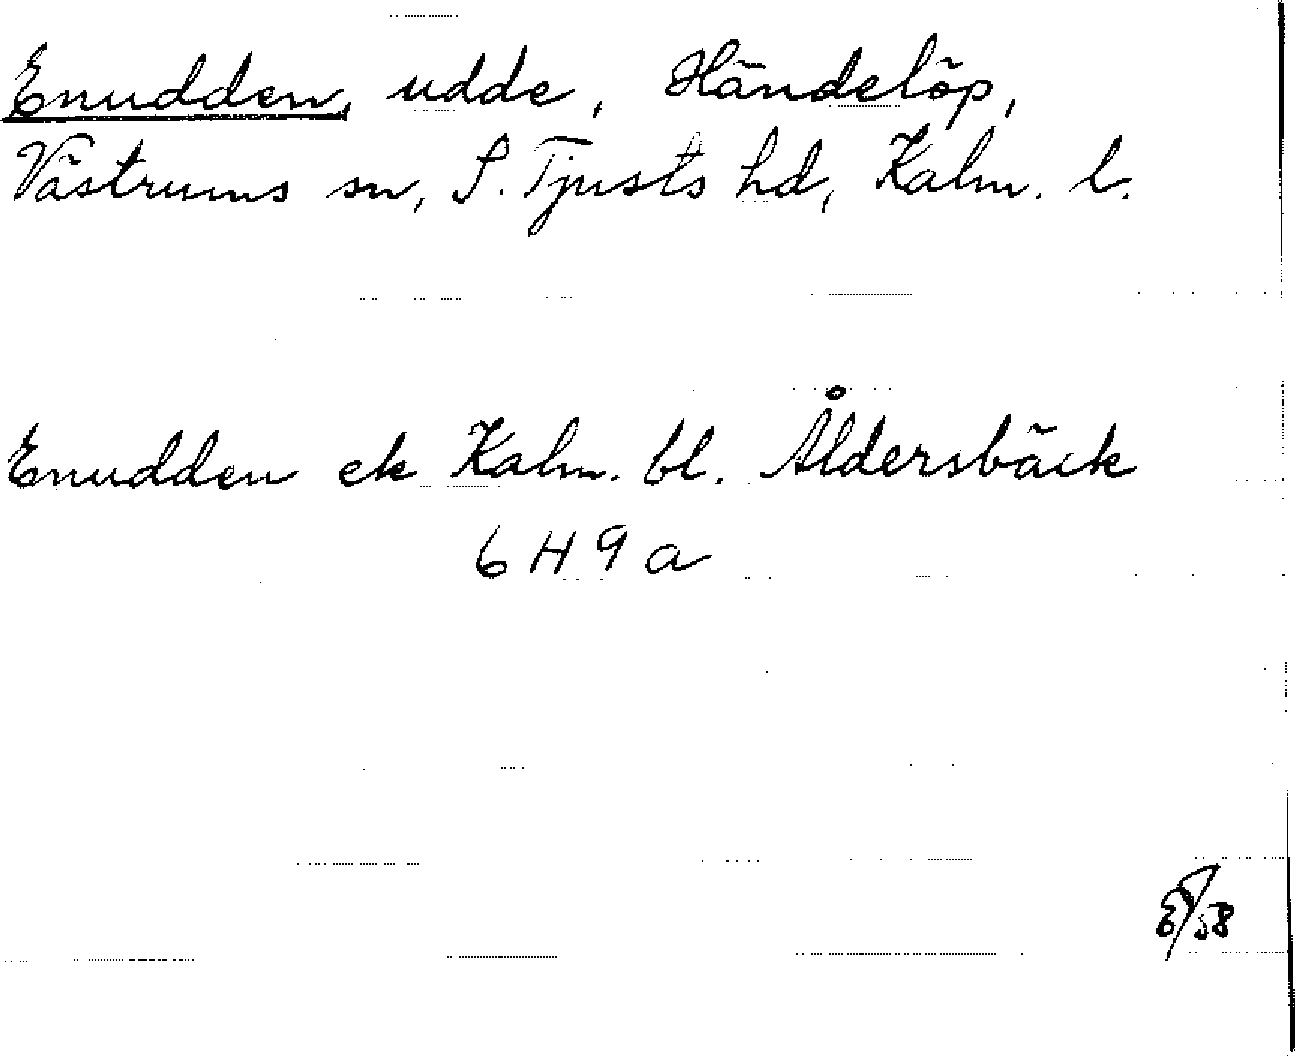 Enudden, udde, Händelöp,
Västrums sn, S. Tjusts hd, Kalm. l.
Enudden ek Kalm. bl. Åldersbäck
6 H 9 a